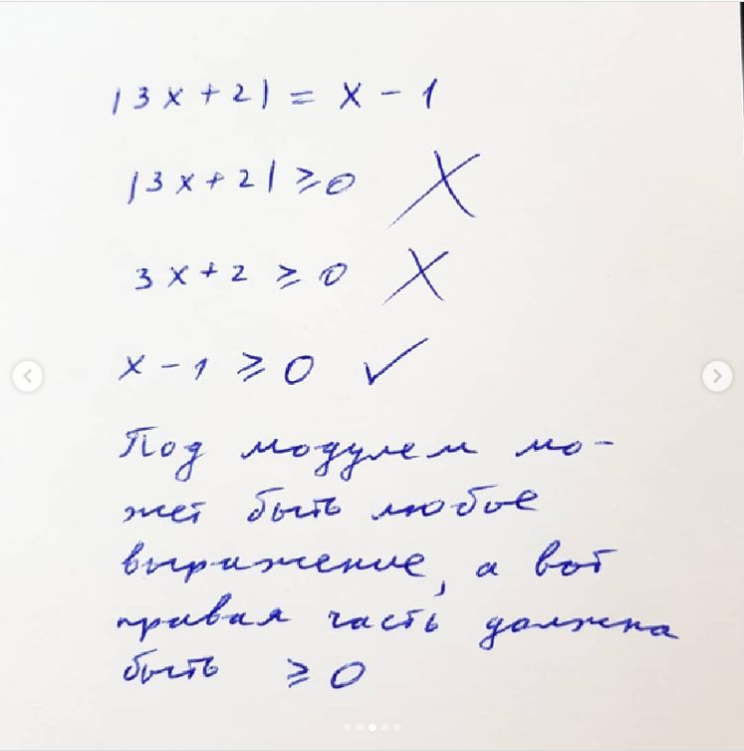 |3x+2| = x-1
|3x+2| ≥ 0 ✗
3x+2 ≥ 0 ✗
x-1 ≥ 0 ✓
Под модулем мо-
жет быть любое
выражение, а вот
правая часть должна
быть ≥ 0